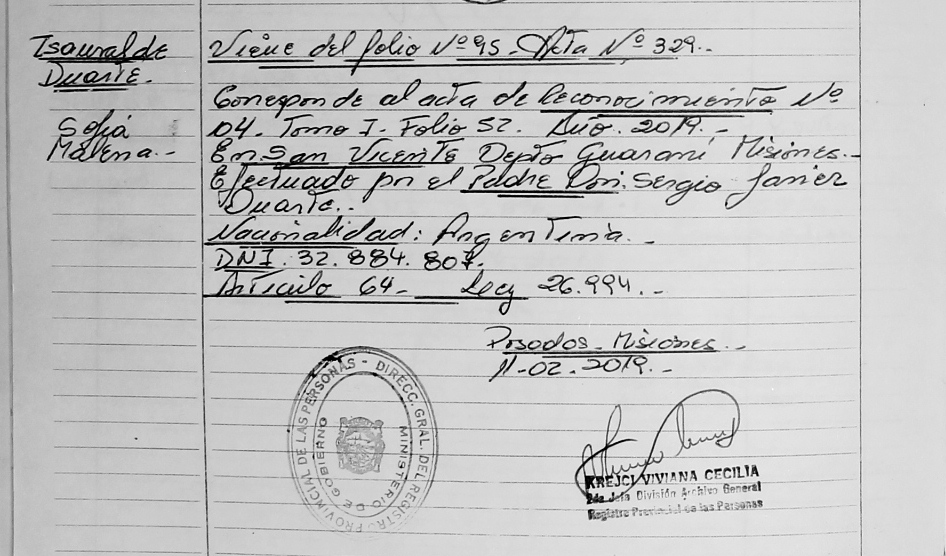 Isauralde
Duarte.
Sofía
Malena.-
Viene del folio Nº 95 - Acta Nº 329.-
Corresponde al acta de Reconocimiento Nº
04. Tomo I. Folio 52. Año. 2019.-
En San Vicente Depto Guaraní Misiones.-
Efectuado por el Padre Don: Sergio Javier
Duarte..
Nacionalidad: Argentina.-
DNI. 32.884.807.
Artículo 64- Ley 26.994.-
Posadas - Misiones.-
11-02-2019.-
DIRECC. GRAL. DEL REGISTRO PROVINCIAL DE LAS PERSONAS -
MINISTERIO DE GOBIERNO
KREJCI VIVIANA CECILIA
2da Jefa División Archivo General
Registro Provincial de las Personas